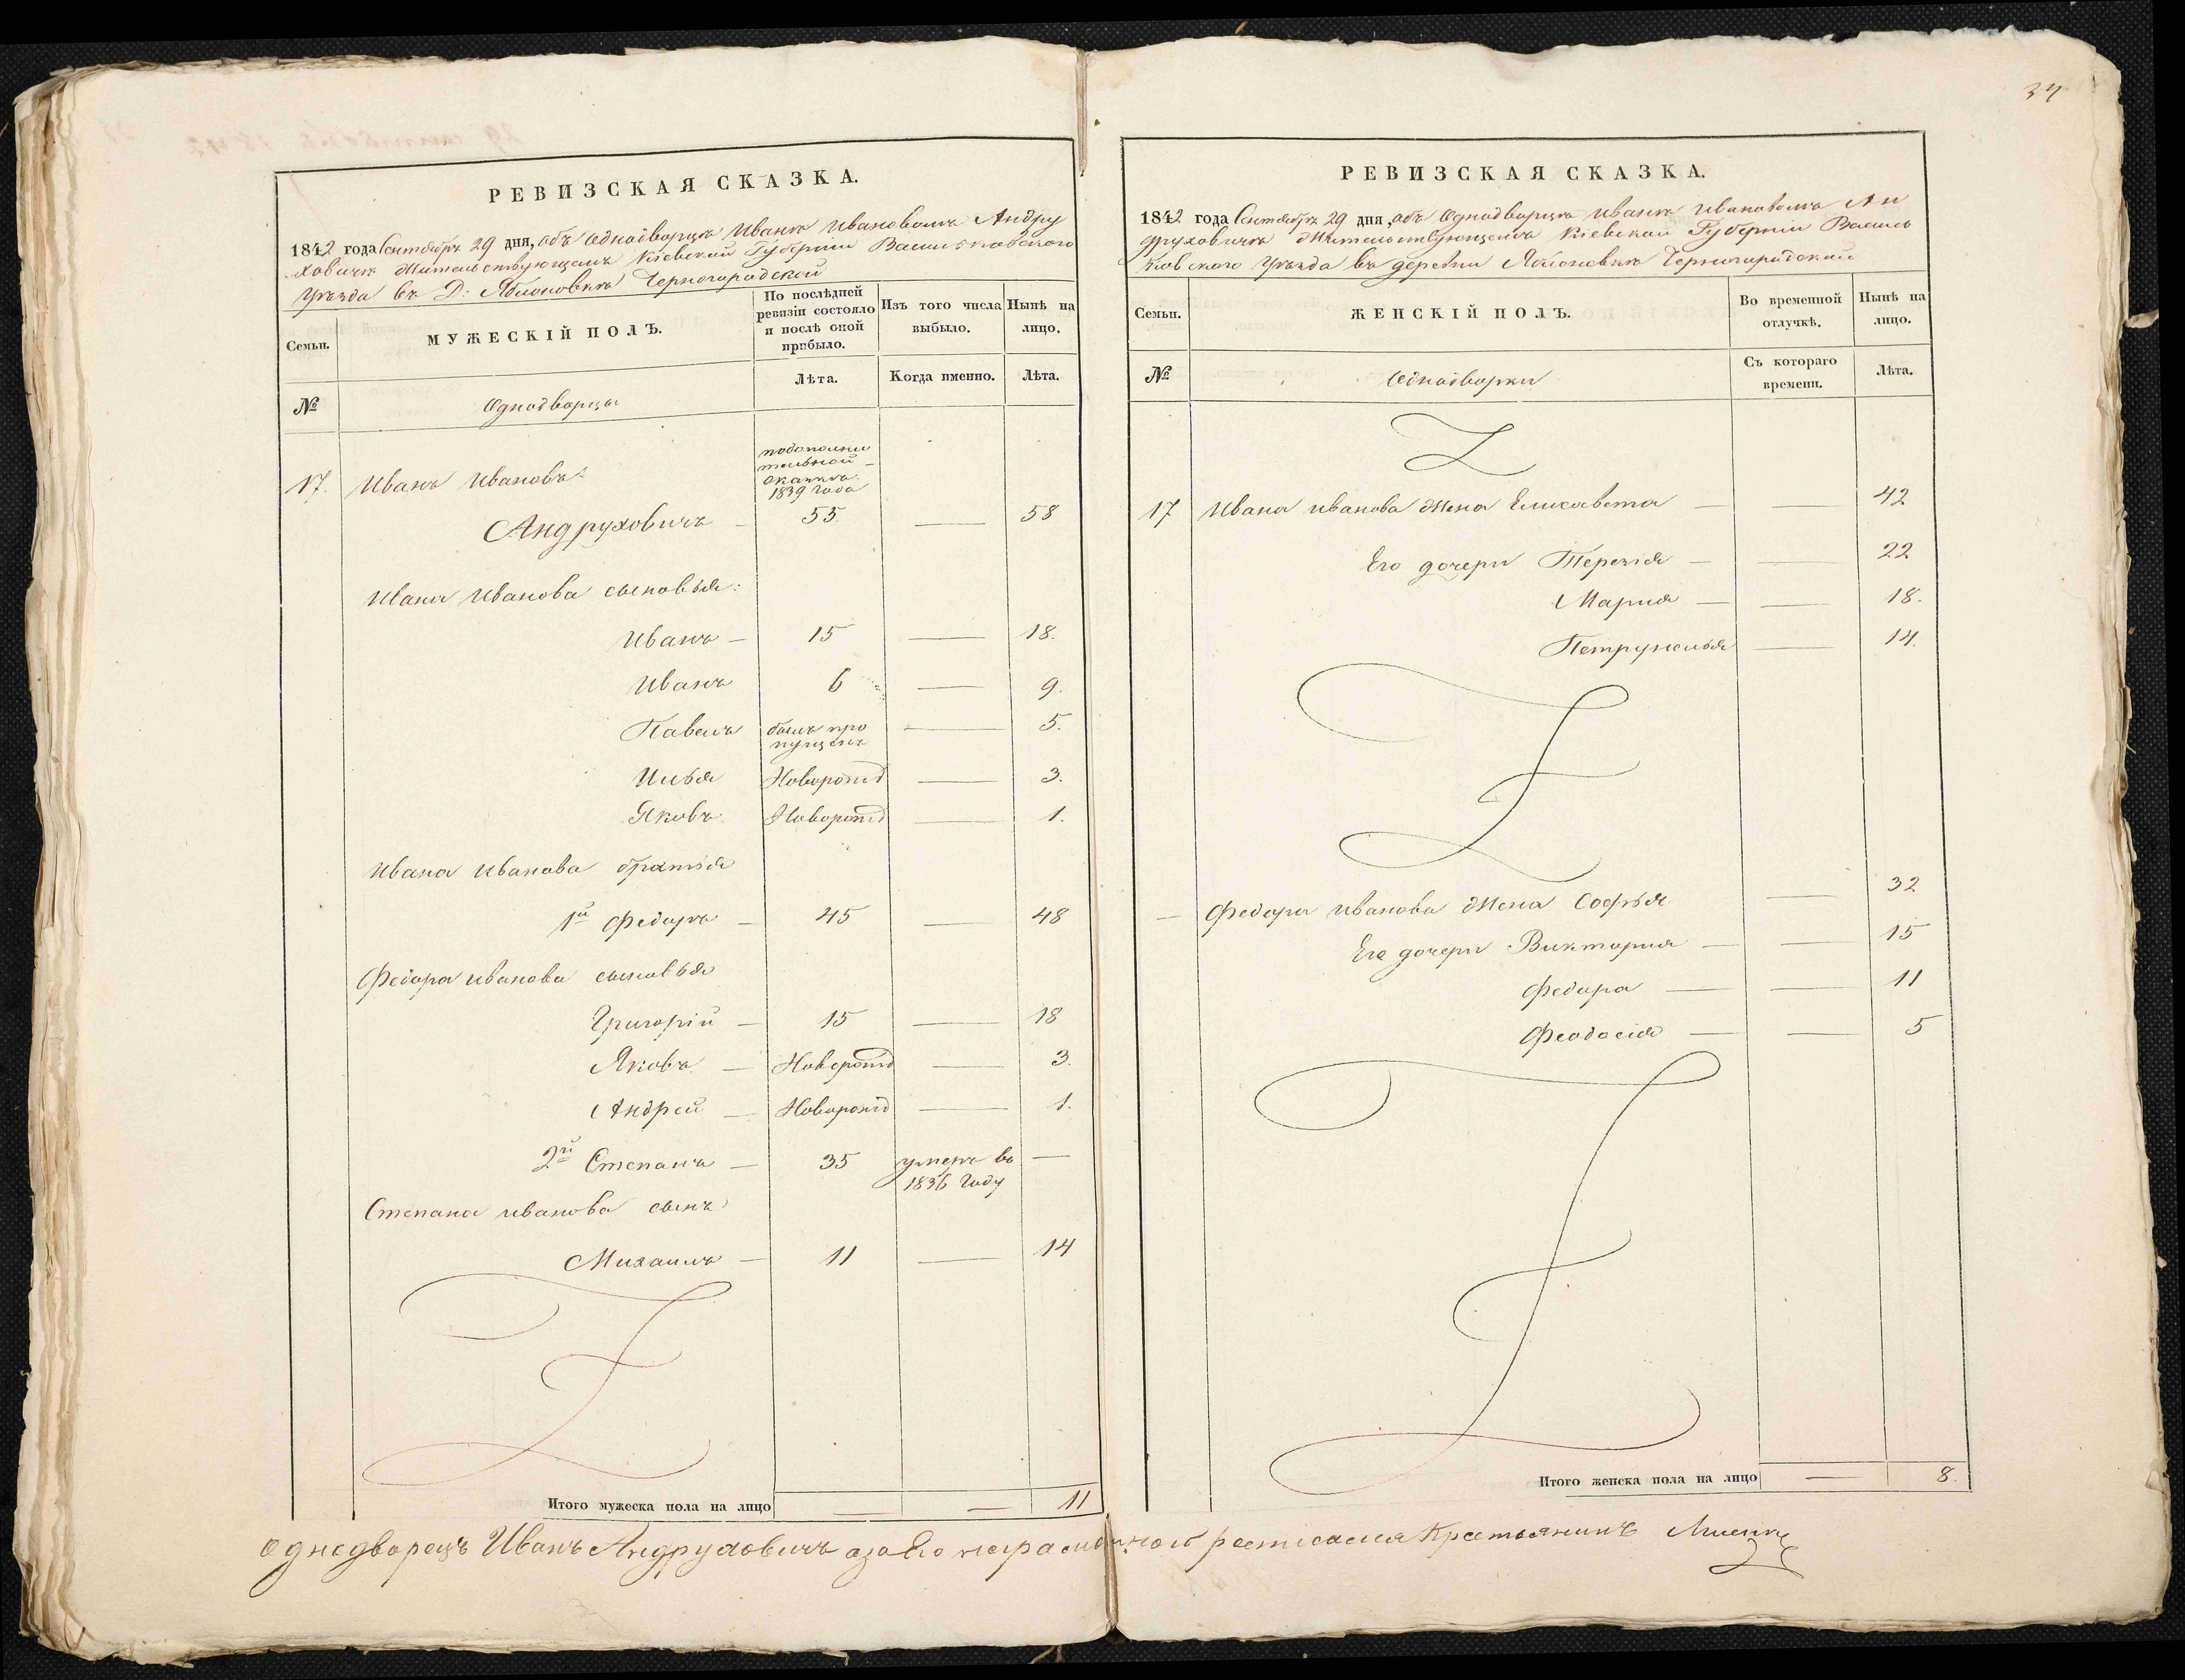 34
РЕВИЗСКАЯ СКАЗКА.
1842 года Сентября 29 дня, объ Однодворцѣ Иванѣ Ивановомъ Андру
ховичѣ Жительствующемъ Кіевской Губерніи Васильковскаго
Уѣзда въ Д: Яблоновкѣ Черногородской
Семьи.
МУЖЕСКІЙ ПОЛЪ.
По послѣдней ревизіи состояло и послѣ оной прибыло.
Изъ того числа выбыло.
Нынѣ на лицо.
№
Однодворцы
Лѣта.
Когда именно.
Лѣта.
17. Иванъ Ивановъ: подополни
тельной
сказкѣ
1839 года
Андруховичъ — 55 — 58
Ивана Иванова сыновья:
Иванъ — 15 — 18.
Иванъ 6 — 9.
Павелъ былъ про
пущенъ — 5.
Илья Новорожд — 3.
Яковъ Новорожд — 1.
Ивана Иванова братья
1й Федоръ — 45 — 48
Федора Иванова сыновья
Григорій — 15 — 18
Яковъ — Новорожд — 3.
Андрей — Новорожд — 1.
2й Степанъ — 35 умеръ въ —
1836 Году
Степана Иванова сынъ
Михаилъ — 11 — 14
Итого мужеска пола на лицо — 11
РЕВИЗСКАЯ СКАЗКА.
1842 года Сентября 29 дня, объ Однодворцѣ Иванѣ Ивановомъ Ан
друховичѣ Жительствующемъ Кіевской Губерніи Василь
ковского Уѣзда въ деревни Яблоновкѣ Черногородской
Семьи.
ЖЕНСКІЙ ПОЛЪ.
Во временной отлучкѣ.
Нынѣ на лицо.
№
Однодворки
Съ котораго времени.
Лѣта.
17 Ивана Иванова Жена Елисавета — — 42
Его дочери Терезія — — 22
Марія — — 18.
Петрунелья — 14.
— Федора Иванова Жена Софья — 32
Его дочери Викторія — — 15
Федора — — 11
Феодосія — — 5
Итого женска пола на лицо — 8.
Однодворецъ Иванъ Андруховичъ азаЕго росписался Крестьянинъ